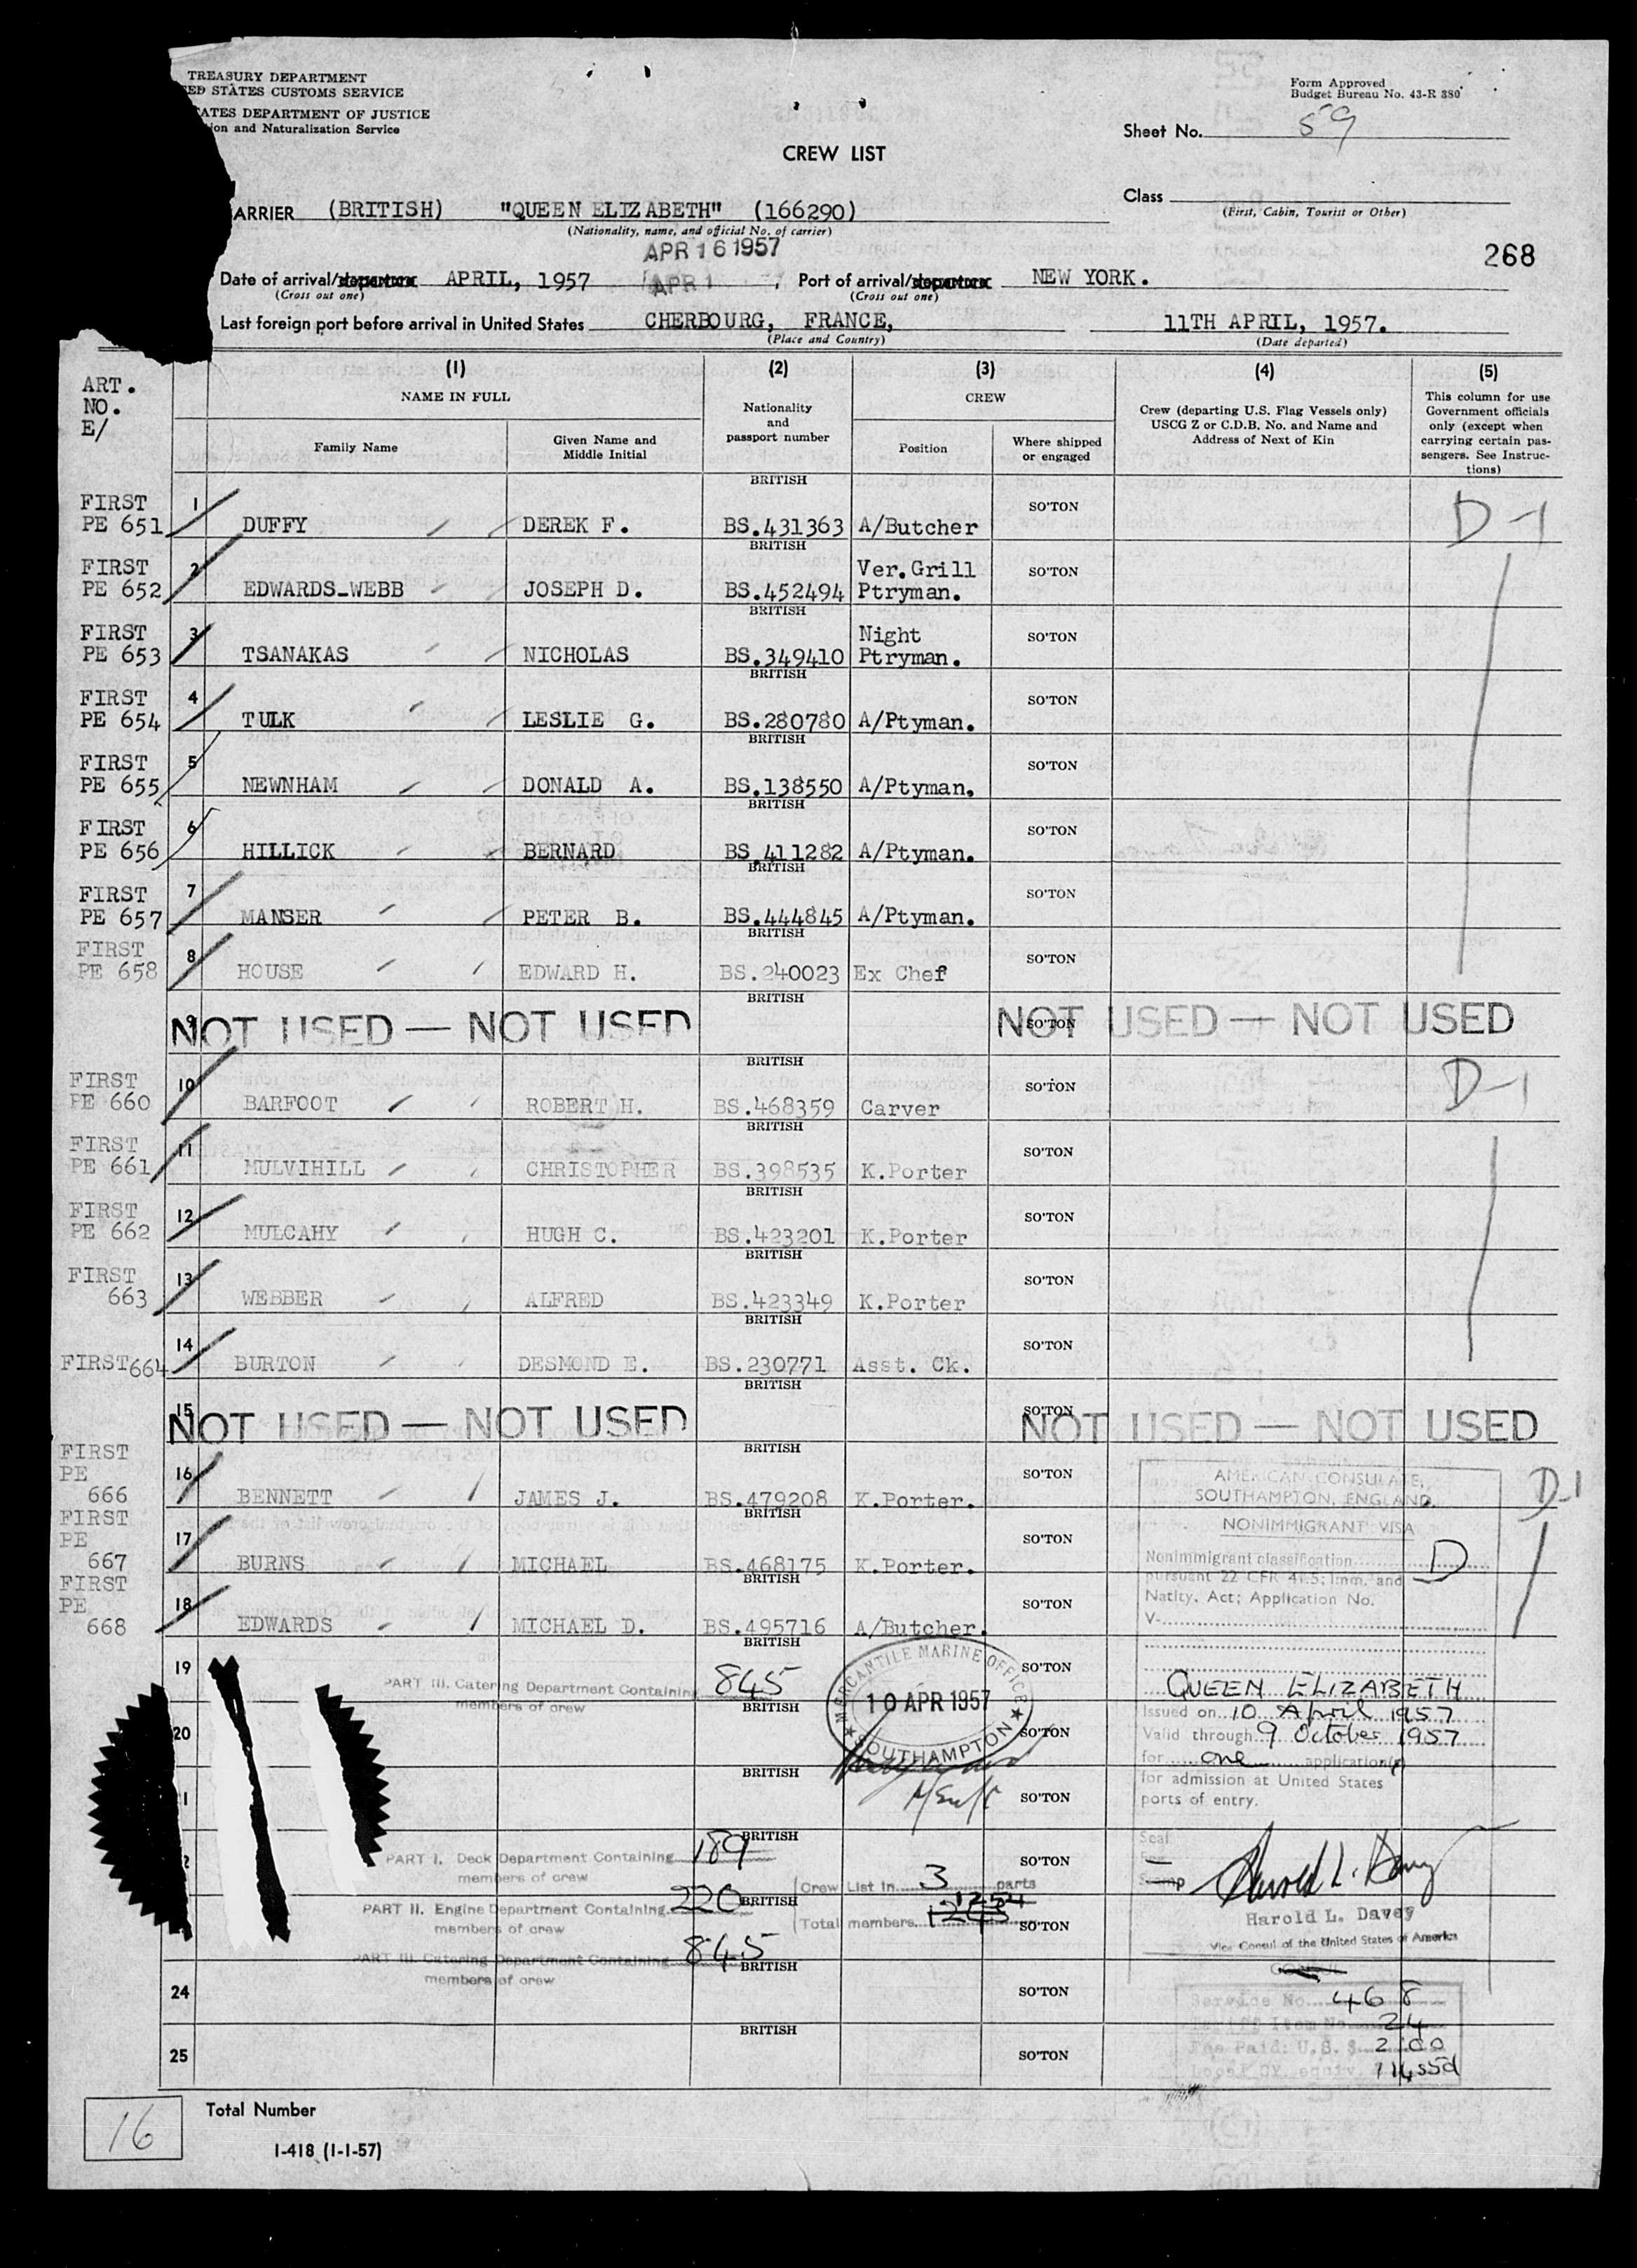 TREASURY DEPARTMENT
ED STATES CUSTOMS SERVICE
ATES DEPARTMENT OF JUSTICE
ion and Naturalization Service
Form Approved
Budget Bureau No. 43-R 380
Sheet No. 59
CREW LIST
Class
(First, Cabin, Tourist or Other)
ARRIER (BRITISH) "QUEEN ELIZABETH" (166290)
(Nationality, name, and official No. of carrier)
APR 16 1957
268
Date of arrival/departure APRIL, 1957 APR 1 , Port of arrival/departure NEW YORK.
(Cross out one) (Cross out one)
Last foreign port before arrival in United States CHERBOURG, FRANCE, 11TH APRIL, 1957.
(Place and Country) (Date departed)
ART.
NO.
E/
(1) (2) (3) (4) (5)
NAME IN FULL
Family Name
Given Name and
Middle Initial
Nationality
and
passport number
CREW
Position
Where shipped
or engaged
Crew (departing U.S. Flag Vessels only)
USCG Z or C.D.B. No. and Name and
Address of Next of Kin
This column for use
Government officials
only (except when
carrying certain pas-
sengers. See Instruc-
tions)
BRITISH
FIRST 1 SO'TON D-1
PE 651 DUFFY DEREK F. BS.431363 A/Butcher
BRITISH
FIRST 2 Ver.Grill SO'TON
PE 652 EDWARDS-WEBB JOSEPH D. BS.452494 Ptryman.
BRITISH
FIRST 3 Night SO'TON
PE 653 TSANAKAS NICHOLAS BS.349410 Ptryman.
BRITISH
FIRST 4 SO'TON
PE 654 TULK LESLIE G. BS.280780 A/Ptyman.
BRITISH
FIRST 5 SO'TON
PE 655 NEWNHAM DONALD A. BS.138550 A/Ptyman.
BRITISH
FIRST 6 SO'TON
PE 656 HILLICK BERNARD BS.411282 A/Ptyman.
BRITISH
FIRST 7 SO'TON
PE 657 MANSER PETER B. BS.444845 A/Ptyman.
BRITISH
FIRST 8 SO'TON
PE 658 HOUSE EDWARD H. BS.240023 Ex Chef
BRITISH
9 SO'TON
NOT USED — NOT USED NOT USED — NOT USED
BRITISH
FIRST 10 SO'TON D-1
PE 660 BARFOOT ROBERT H. BS.468359 Carver
BRITISH
FIRST 11 SO'TON
PE 661 MULVIHILL CHRISTOPHER BS.398535 K.Porter
BRITISH
FIRST 12 SO'TON
PE 662 MULCAHY HUGH C. BS.423201 K.Porter
BRITISH
FIRST 13 SO'TON
663 WEBBER ALFRED BS.423349 K.Porter
BRITISH
14 SO'TON
FIRST 664 BURTON DESMOND E. BS.230771 Asst. Ck.
BRITISH
15 SO'TON
NOT USED — NOT USED NOT USED — NOT USED
BRITISH
FIRST
PE 16 SO'TON D-1
666 BENNETT JAMES J. BS.479208 K.Porter.
BRITISH
FIRST
PE 17 SO'TON
667 BURNS MICHAEL BS.468175 K.Porter.
BRITISH
FIRST
PE 18 SO'TON
668 EDWARDS MICHAEL D. BS.495716 A/Butcher.
BRITISH
AMERICAN CONSULATE,
SOUTHAMPTON, ENGLAND.
NONIMMIGRANT VISA
Nonimmigrant classification D
pursuant 22 CFR 41.5; Imm. and
Natlty. Act; Application No.
V-
QUEEN ELIZABETH
Issued on 10 April 1957
Valid through 9 October 1957
for one application(s)
for admission at United States
ports of entry.
Seal
Stamp
Harold L. Davey
Harold L. Davey
Vice Consul of the United States of America
Service No. 468
Tariff Item No. 24
Fee Paid: U.S. $ 2.00
Local CY. equiv. 14s5d
19 SO'TON
PART III. Catering Department Containing 845
members of crew
MERCANTILE MARINE OFFICE
10 APR 1957
SOUTHAMPTON
BRITISH
20 SO'TON
BRITISH
1 SO'TON
BRITISH
2 SO'TON
PART I. Deck Department Containing 189
members of crew
Crew List in 3 parts
BRITISH
PART II. Engine Department Containing 220
members of crew
Total members 1254
SO'TON
PART III. Catering Department Containing 845
members of crew
BRITISH
24 SO'TON
BRITISH
25 SO'TON
16 Total Number
I-418 (1-1-57)